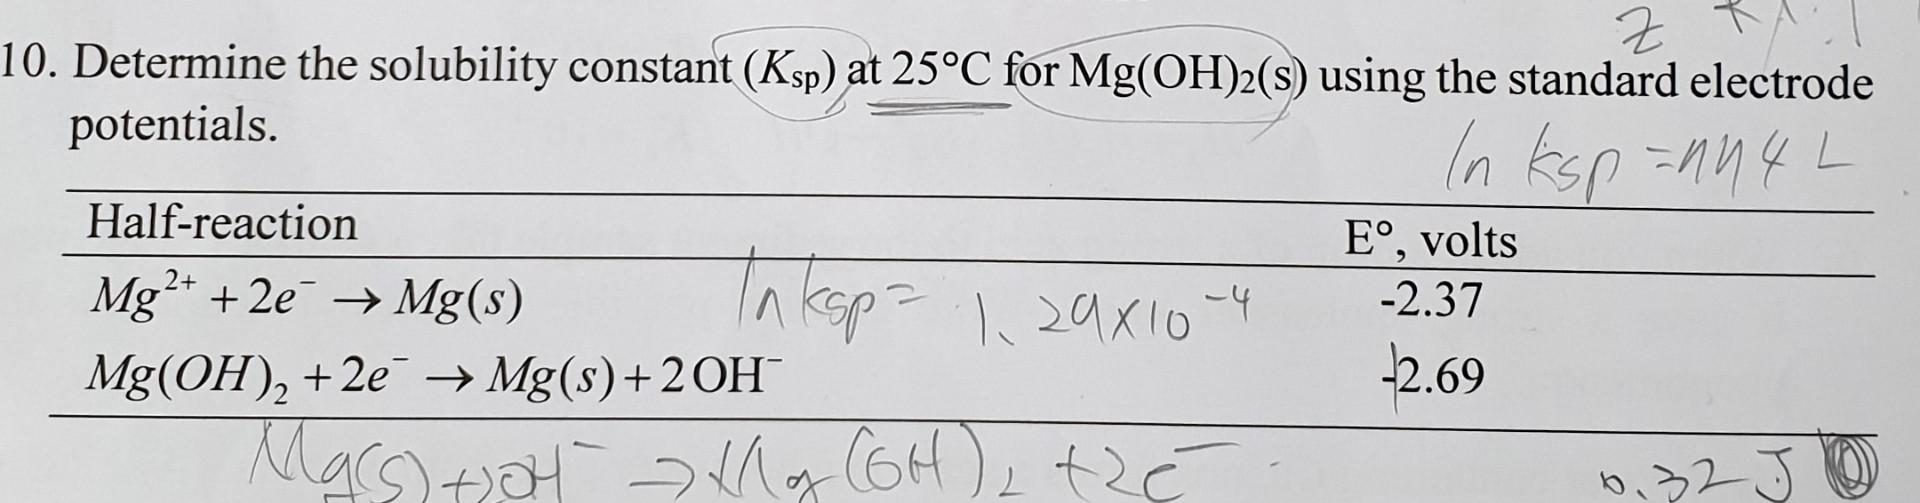 10. Determine the solubility constant (Ksp) at 25°C for Mg(OH)2(s) using the standard electrode
potentials.
ln ksp =
Half-reaction E°, volts
Mg²⁺ + 2e⁻ → Mg(s) -2.37
ln ksp = 1.29x10⁻⁴
Mg(OH)₂ + 2e⁻ → Mg(s) + 2 OH⁻ -2.69
Mg(s) + 2OH⁻ → Mg(OH)₂ + 2e⁻
0.32 J